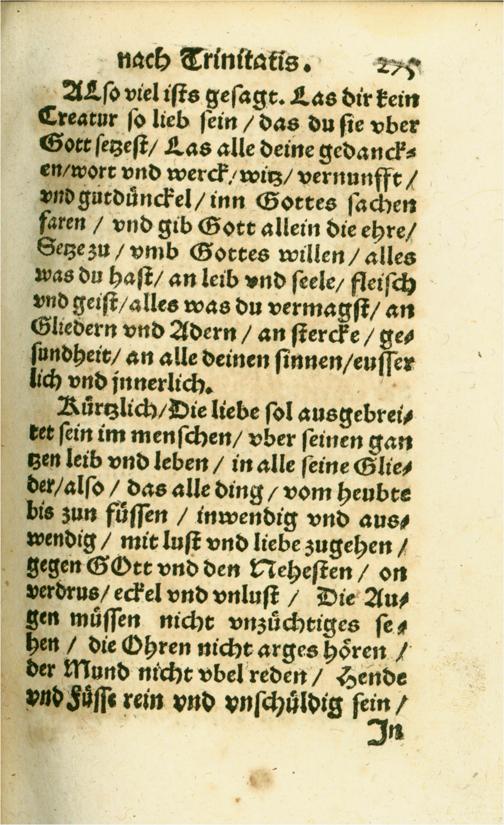 nach Trinitatis. 275
ALso viel ists gesagt. Las dir kein
Creatur so lieb sein / das du sie vber
Gott setzest / Las alle deine gedanck-
en/wort vnd werck/witz/ vernunfft /
vnd gutdünckel / inn Gottes sachen
faren / vnd gib Gott allein die ehre/
Setze zu / vmb Gottes willen / alles
was du hast/ an leib vnd seele/ fleisch
vnd geist/alles was du vermagst/ an
Gliedern vnd Adern / an stercke / ge-
sundheit/ an alle deinen sinnen/eusser
lich vnd jnnerlich.
Kürtzlich/Die liebe sol ausgebrei-
tet sein im menschen/ vber seinen gan
tzen leib vnd leben / in alle seine Glie-
der/also / das alle ding / vom heubte
bis zun füssen / inwendig vnd aus-
wendig / mit lust vnd liebe zugehen /
gegen GOtt vnd den Nehesten / on
verdrus/ eckel vnd vnlust / Die Au-
gen müssen nicht vnzüchtiges se-
hen / die Ohren nicht arges hören /
der Mund nicht vbel reden / Hende
vnd Füsse rein vnd vnschüldig sein /
In